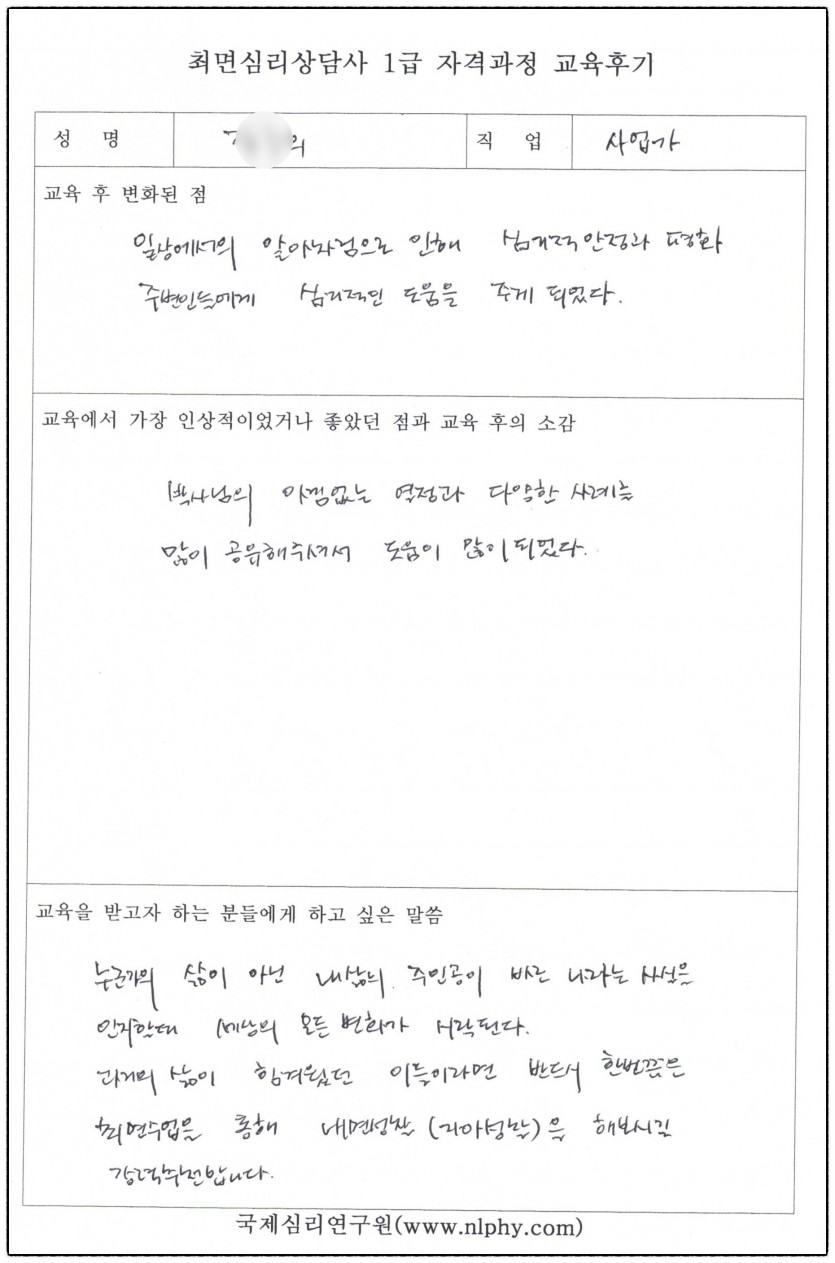 최면심리상담사 1급 자격과정 교육후기
성 명
의
직 업
사업가
교육 후 변화된 점
일상에서의 알아차림으로 인해 심리적안정과 평화
주변인들에게 심리적인 도움을 주게 되었다.
교육에서 가장 인상적이었거나 좋았던 점과 교육 후의 소감
박사님의 아낌없는 열정과 다양한 사례를
많이 공유해주셔서 도움이 많이 되었다.
교육을 받고자 하는 분들에게 하고 싶은 말씀
누군가의 삶이 아닌 내삶의 주인공이 바로 나라는 사실을
인지할때 세상의 모든 변화가 시작된다.
과거의 삶이 힘겨웠던 이들이라면 반드시 한번쯤은
최면수업을 통해 내면성찰(자아성찰)을 해보시길
강력추천합니다.
국제심리연구원(www.nlphy.com)